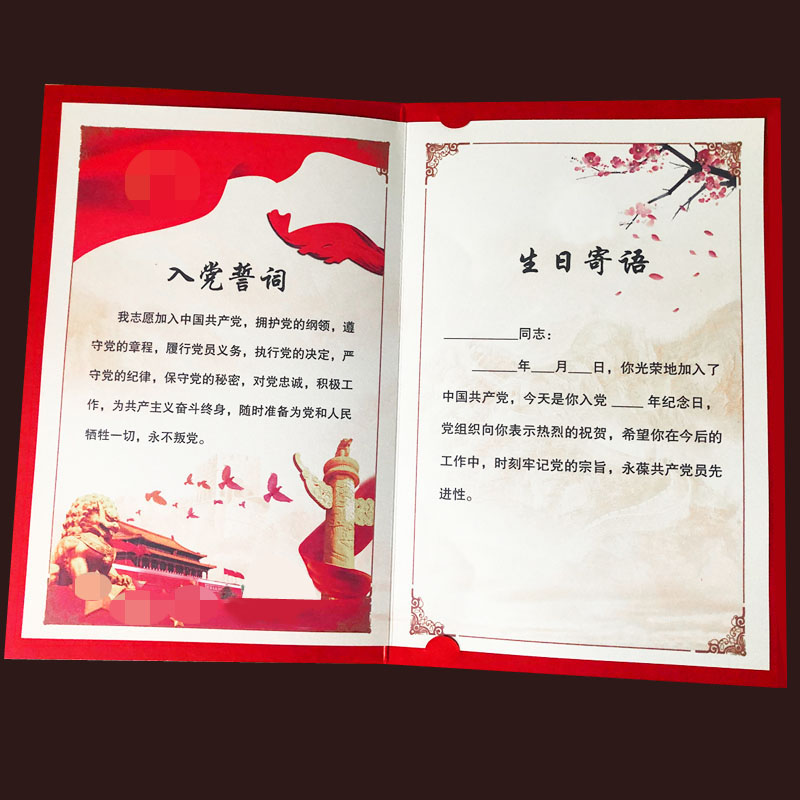 入党誓词
我志愿加入中国共产党，拥护党的纲领，遵
守党的章程，履行党员义务，执行党的决定，严
守党的纪律，保守党的秘密，对党忠诚，积极工
作，为共产主义奋斗终身，随时准备为党和人民
牺牲一切，永不叛党。
生日寄语
_________同志：
______年___月___日，你光荣地加入了
中国共产党，今天是你入党 ____ 年纪念日，
党组织向你表示热烈的祝贺，希望你在今后的
工作中，时刻牢记党的宗旨，永葆共产党员先
进性。